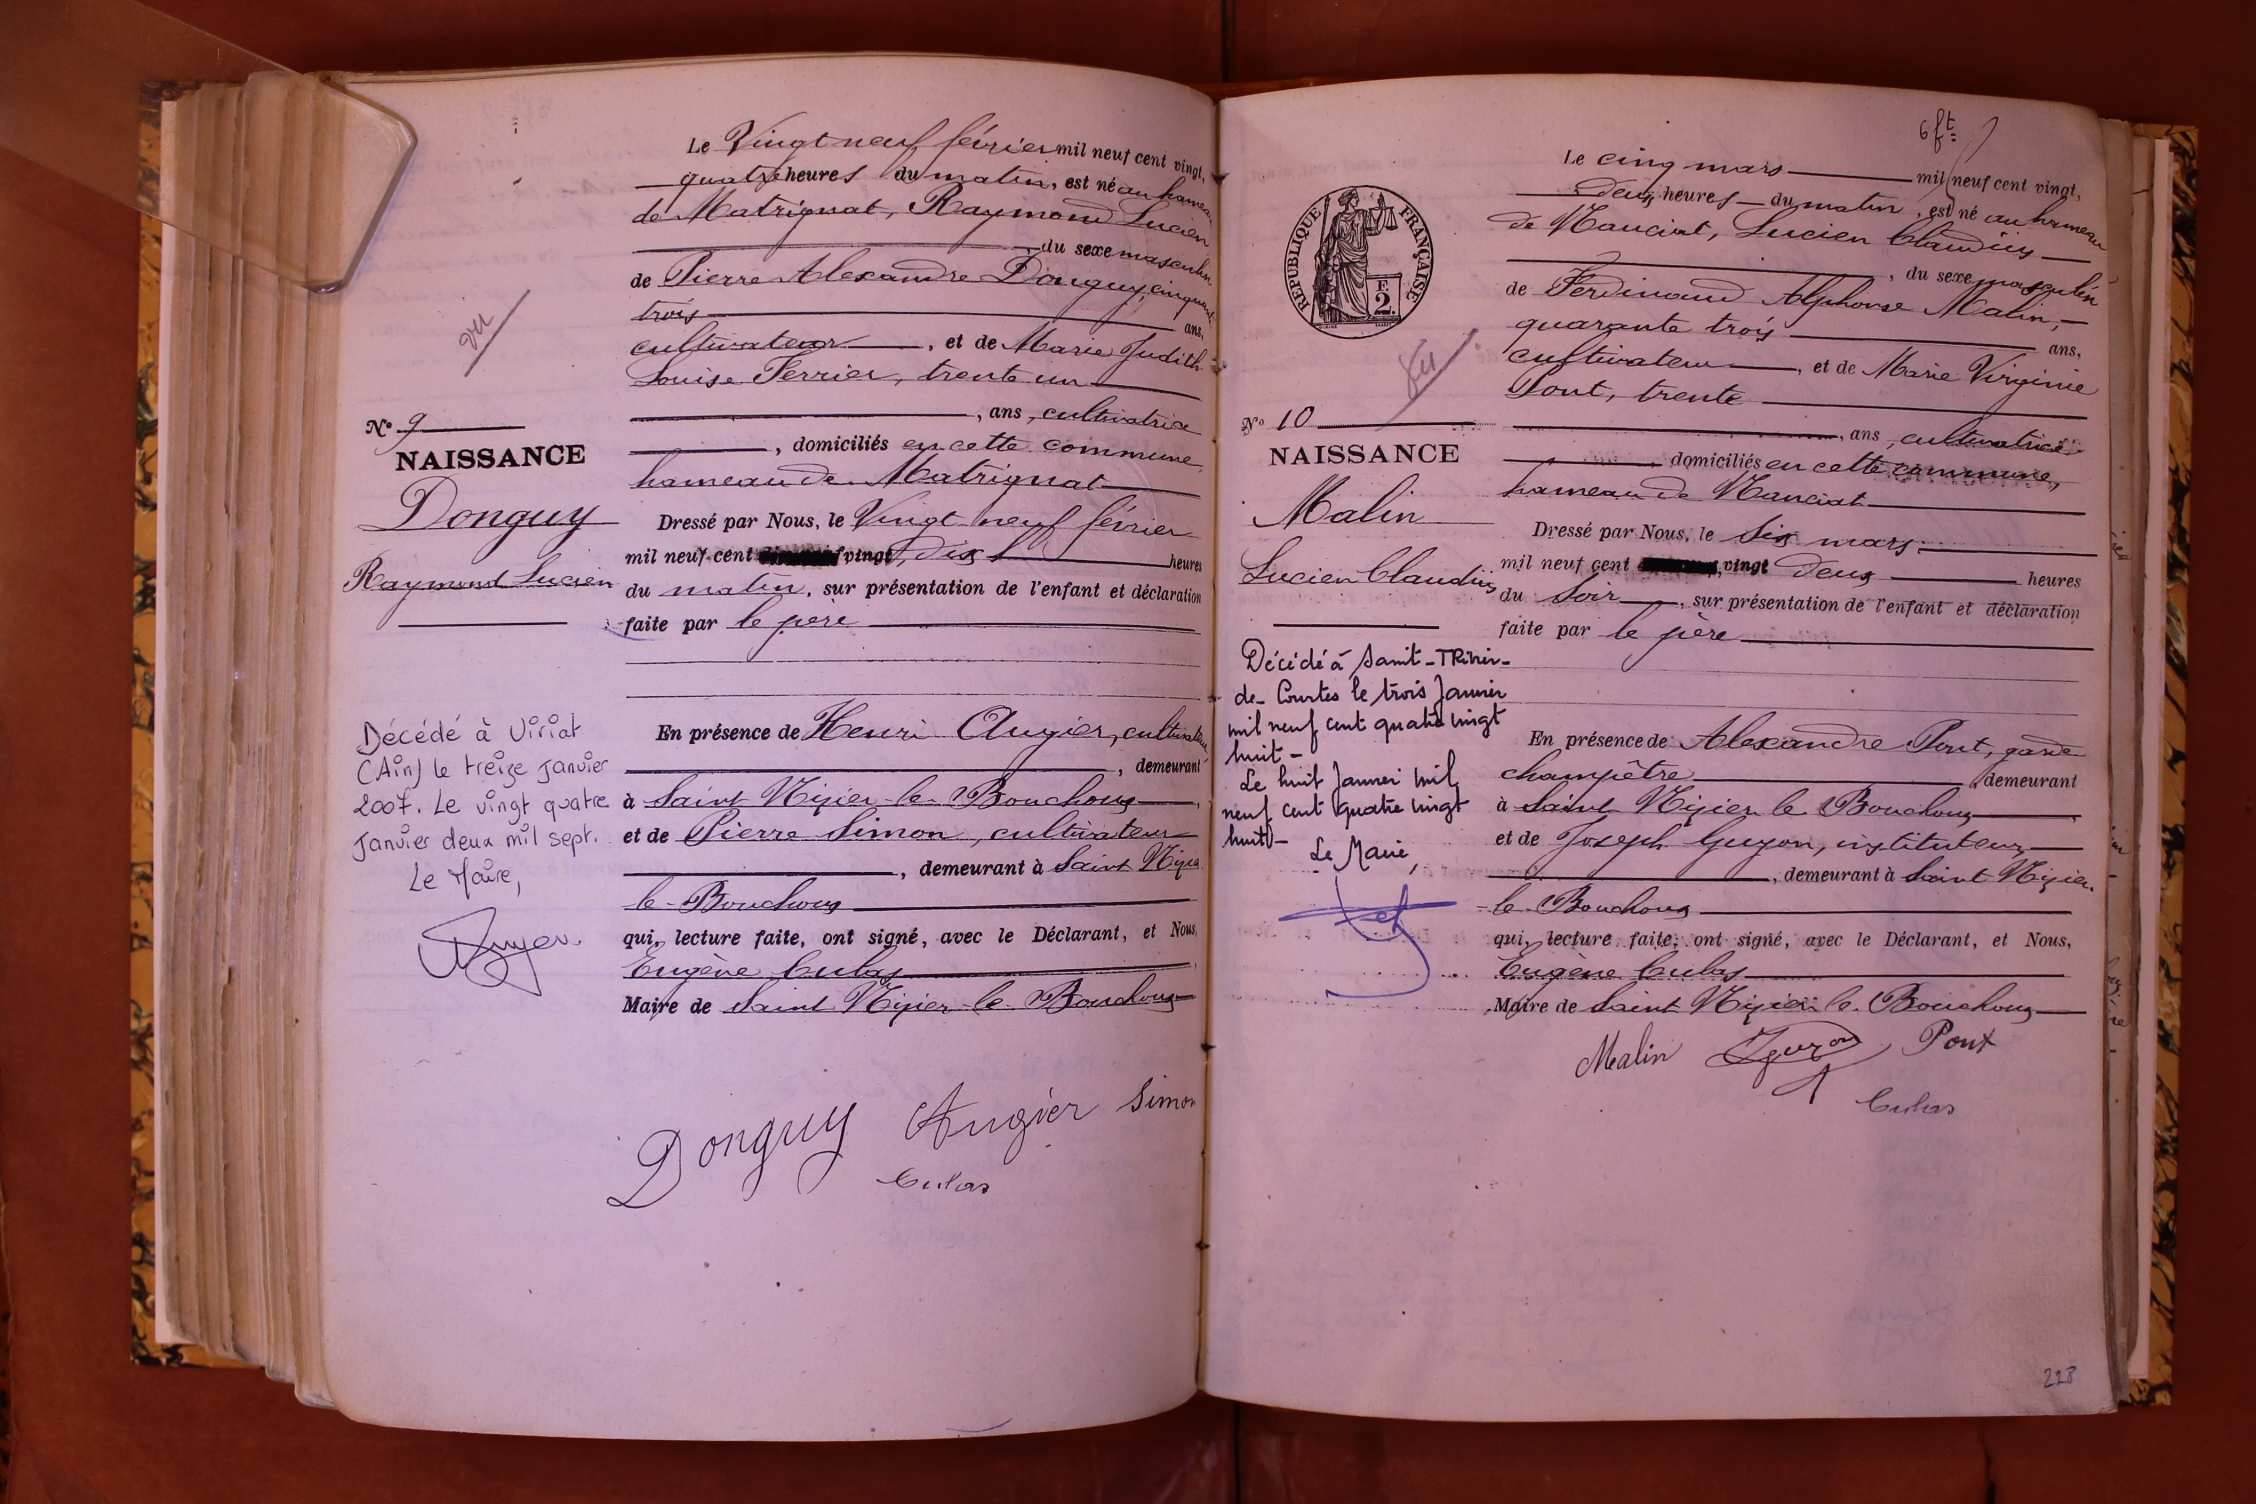 Le Vingt neuf février mil neuf cent vingt,
quatre heures du matin, est né au hameau
de Matrignat, Raymond Lucien
, du sexe masculin
de Pierre Alexandre Donguy, cinquante
trois ans,
cultivateur, et de Marie Judith
Louise Ferrier, trente un
, ans, cultivatrice
, domiciliés en cette commune,
hameau de Matrignat
vu
N° 9
NAISSANCE
Donguy
Raymond Lucien
Dressé par Nous, le Vingt neuf février
mil neuf cent vingt, dix heures
du matin, sur présentation de l'enfant et déclaration
faite par le père
Décédé à Viriat
(Ain) le treize janvier
2007. Le vingt quatre
janvier deux mil sept.
Le Maire,
En présence de Henri Augier, cultivateur
, demeurant
à Saint Nizier le Bouchoux,
et de Pierre Simon, cultivateur
, demeurant à Saint Nizier
le Bouchoux
qui, lecture faite, ont signé, avec le Déclarant, et Nous,
Eugène Cubas,
Maire de Saint Nizier le Bouchoux
Donguy Augier Simon
Cubas
6 ft
RÉPUBLIQUE FRANÇAISE
F
2.
Le cinq mars mil neuf cent vingt,
deux heures du matin, est né au hameau
de Nanciat, Lucien Claudius
, du sexe masculin
de Ferdinand Alphonse Malin,
quarante trois ans,
cultivateur, et de Marie Virginie
Pont, trente
, ans, cultivatrice
, domiciliés en cette commune,
hameau de Nanciat
vu
N° 10
NAISSANCE
Malin
Lucien Claudius
Dressé par Nous, le six mars
mil neuf cent vingt deux heures
du soir, sur présentation de l'enfant et déclaration
faite par le père
Décédé à Saint-Trivier-
de-Courtes le trois Janvier
mil neuf cent quatre vingt
huit-
Le huit Janvier mil
neuf cent quatre vingt
huit-
Le Maire,
En présence de Alexandre Pont, garde
champêtre, demeurant
à Saint Nizier le Bouchoux,
et de Joseph Guyon, instituteur,
, demeurant à Saint Nizier
le Bouchoux
qui, lecture faite, ont signé, avec le Déclarant, et Nous,
Eugène Cubas
Maire de Saint Nizier le Bouchoux
Malin JGuyon Pont
Cubas
228